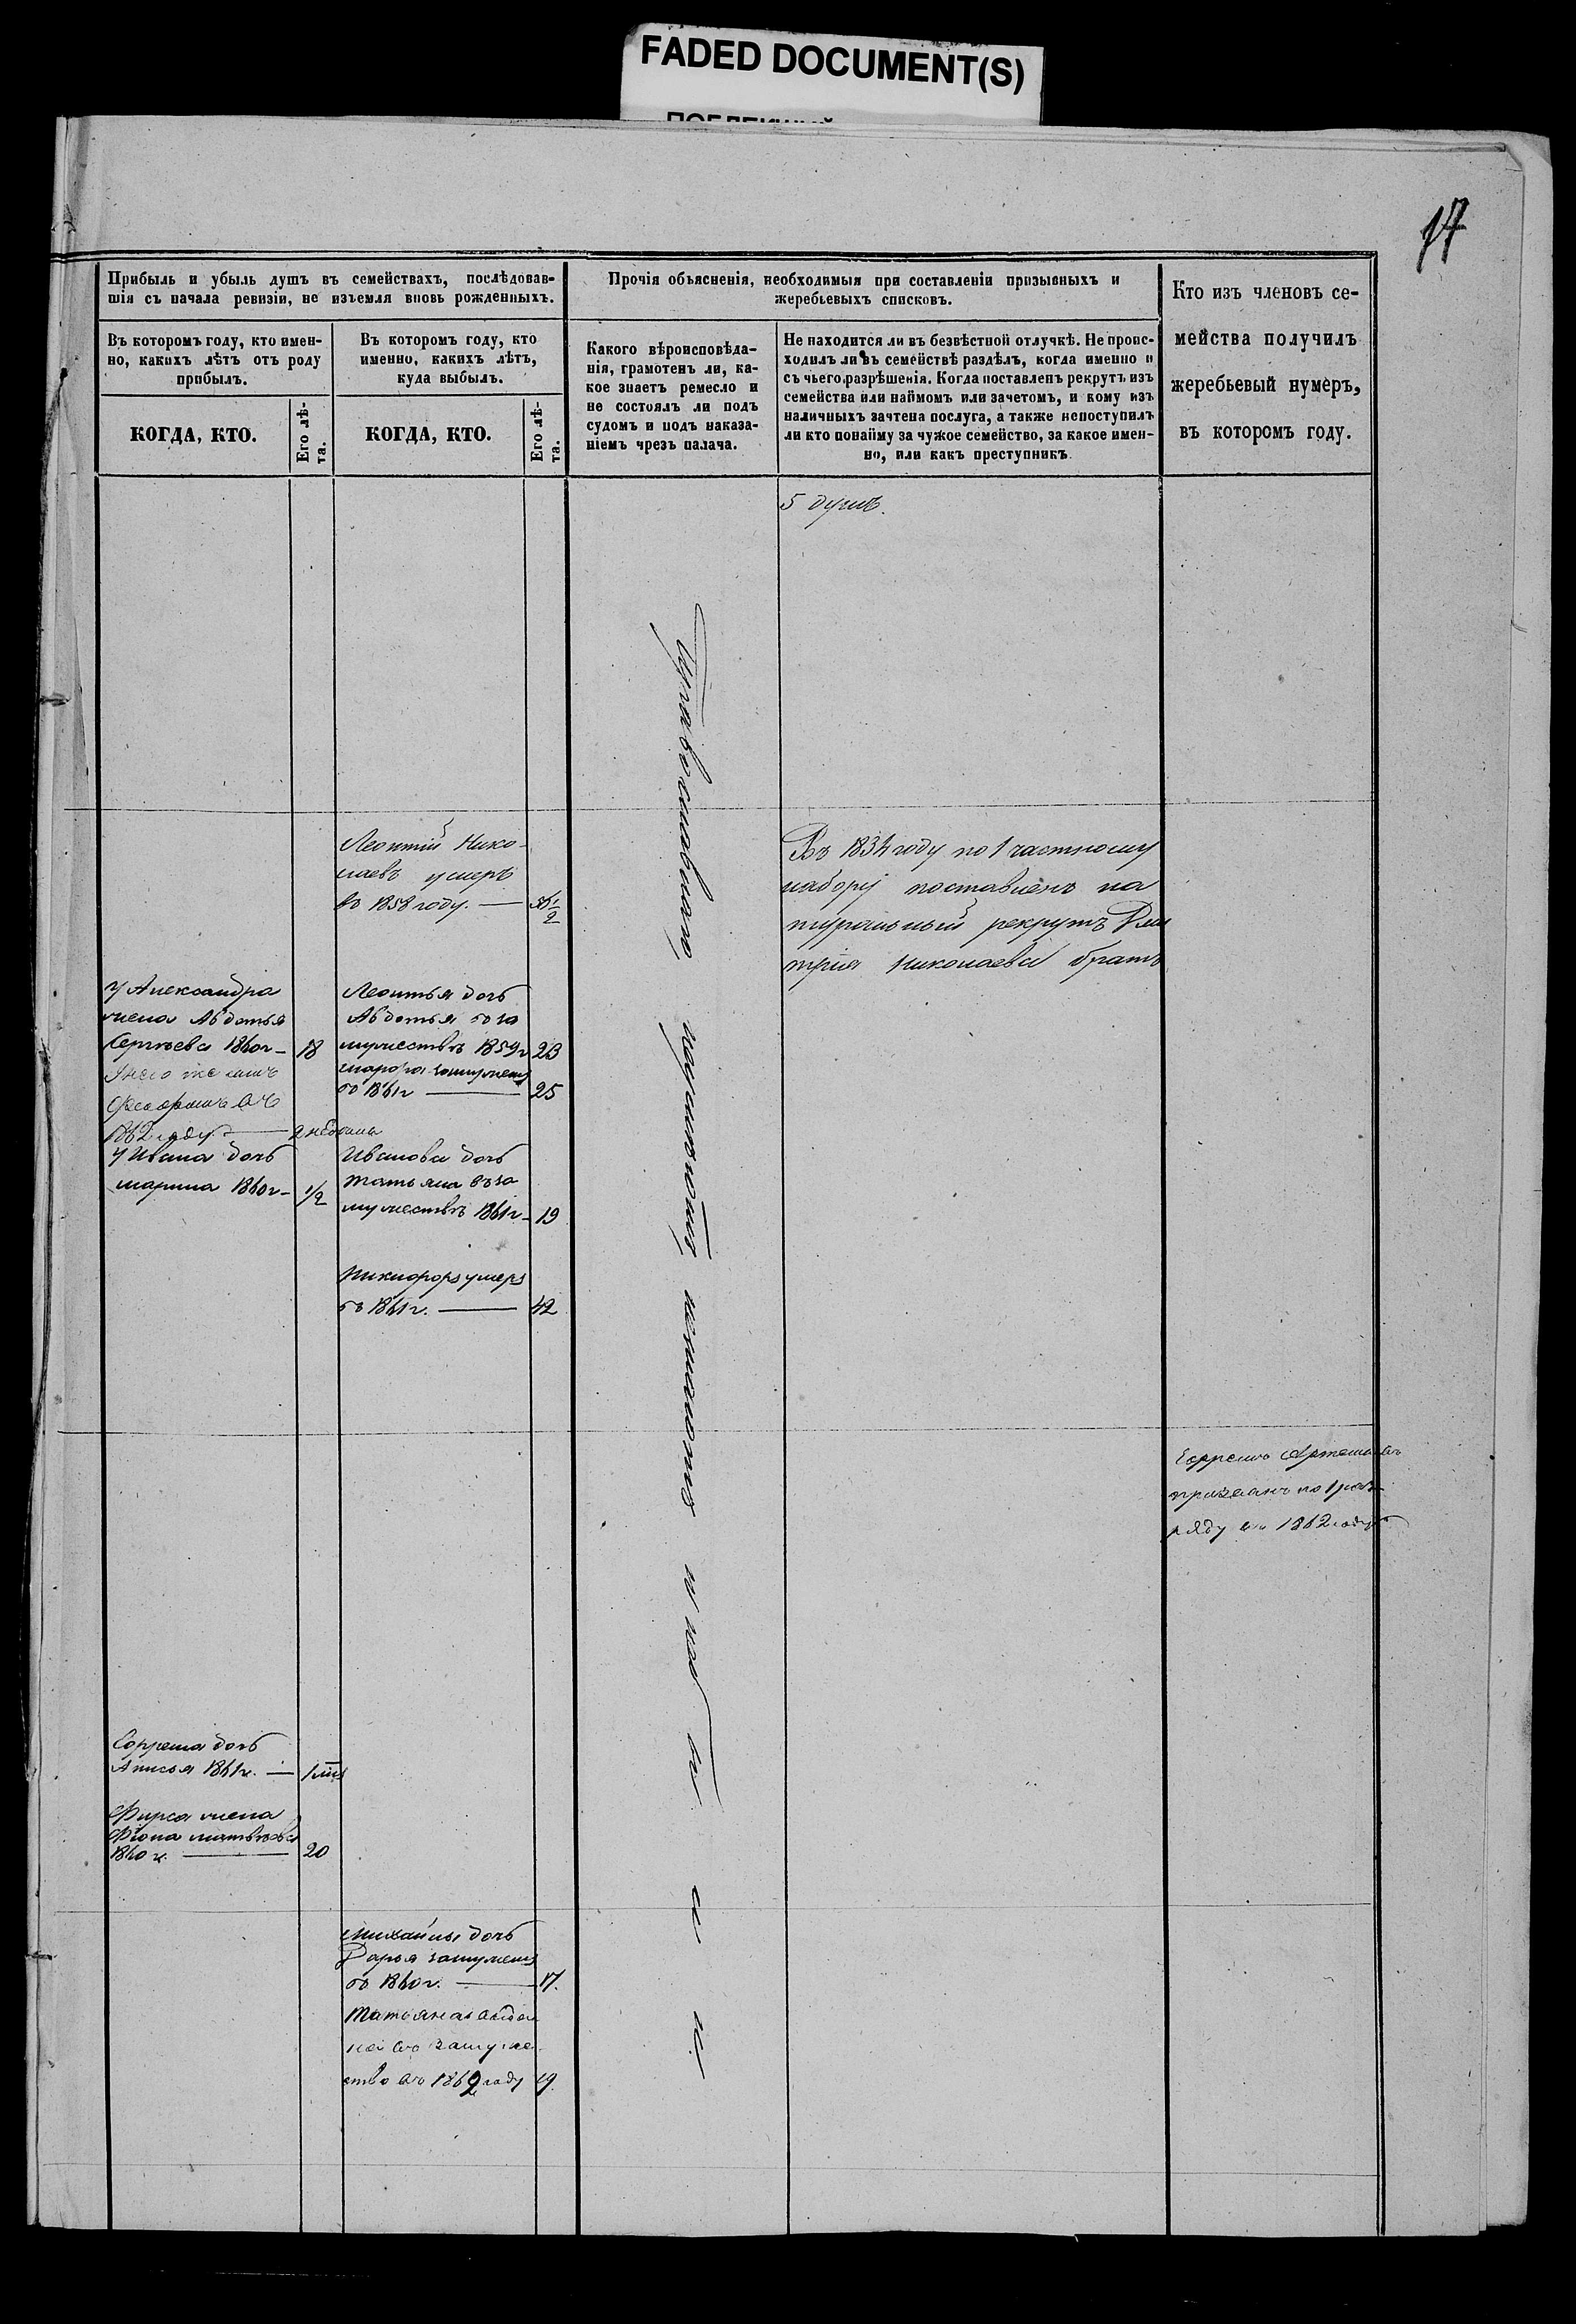 FADED DOCUMENT(S)
17
Прибыль и убыль душъ въ семействахъ, послѣдовав-
шія съ начала ревизіи, не изъемля вновь рожденныхъ.
Въ которомъ году, кто имен-
но, какихъ лѣтъ отъ роду
прибылъ.
КОГДА, КТО.
Его лѣ-
та.
Въ которомъ году, кто
именно, какихъ лѣтъ,
куда выбылъ.
КОГДА, КТО.
Его лѣ-
та.
Прочія объясненія, необходимыя при составленіи призывныхъ и
жеребьевыхъ списковъ.
Какого вѣроисповѣда-
нія, грамотенъ ли, ка-
кое знаетъ ремесло и
не состоялъ ли подъ
судомъ и подъ наказа-
ніемъ чрезъ палача.
Не находится ли въ безвѣстной отлучкѣ. Не проис-
ходилъ ли въ семействѣ раздѣлъ, когда именно и
съ чьего разрѣшенія. Когда поставленъ рекрутъ изъ
семейства или наймомъ или зачетомъ, и кому изъ
наличныхъ зачтена послуга, а также непоступилъ
ли кто понайму за чужое семейство, за какое имен-
но, или какъ преступникъ.
Кто изъ членовъ се-
мейства получилъ
жеребьевый нумеръ,
въ которомъ году.
5 душъ.
Леонтій Нико-
лаевъ умеръ
въ 1858 году. —
Въ 1834 году по 1 частному
набору поставленъ на
туральный рекрутъ Дми
трія Николаева братъ
У Александра
жена Авдотья
Сергѣева 1860 г – 18
Унего же сынъ
въ
1862 году — 2 недѣли
У Ивана дочь
Марина 1860 г – 1/2
Леонтья дочь
Авдотья въ за
мужествѣ 1859 г 23
замужемъ
въ 1861 г — 25
Иванова дочь
Татьяна въ за
мужествѣ 1861 г – 19
Никифоръ умеръ
въ 1861 г. — 42
Ефремъ Артемьевъ
призванъ по 1 раз-
ряду въ 1862 году
Ефрема дочь
Анисья 1861 г. — 1 мѣс
Фирса жена
Матвѣева
1860 г. — 20
Михайлы дочь
Дарья замужемъ
въ 1860 г. — 17.
Татьяна выда
на въ замуже
ство въ 1862 году 19.
Православнаго